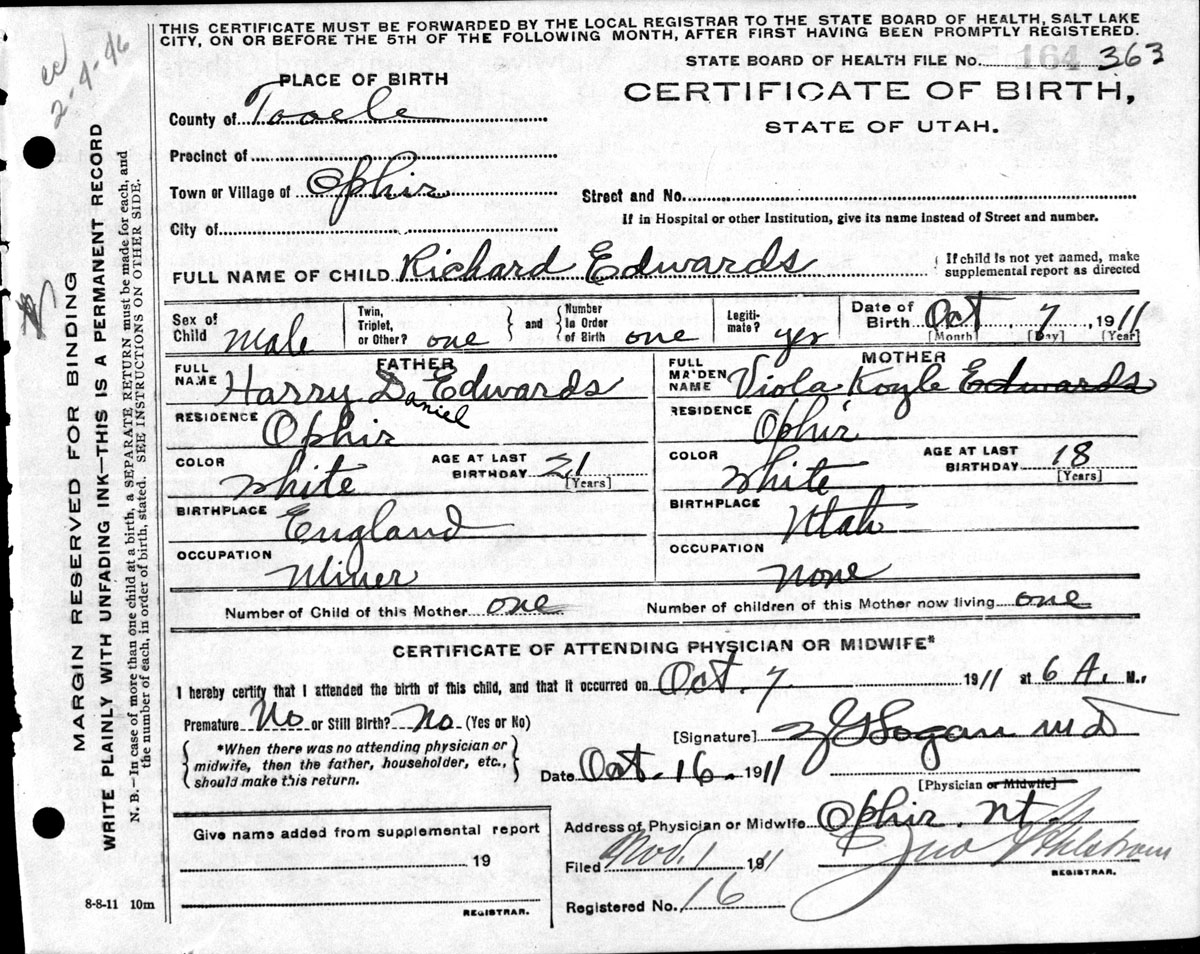 THIS CERTIFICATE MUST BE FORWARDED BY THE LOCAL REGISTRAR TO THE STATE BOARD OF HEALTH, SALT LAKE
CITY, ON OR BEFORE THE 5TH OF THE FOLLOWING MONTH, AFTER FIRST HAVING BEEN PROMPTLY REGISTERED.
STATE BOARD OF HEALTH FILE No. 164 363
PLACE OF BIRTH
CERTIFICATE OF BIRTH,
STATE OF UTAH.
County of Tooele
Precinct of
Town or Village of Ophir
Street and No.
If in Hospital or other Institution, give its name instead of Street and number.
City of
FULL NAME OF CHILD Richard Edwards
If child is not yet named, make
supplemental report as directed
Sex of Child Male
Twin, Triplet, or Other? one
and Number in Order of Birth one
Legiti-mate? yes
Date of Birth Oct 7, 1911
[Month] [Day] [Year]
FATHER
FULL NAME Harry Daniel Edwards
RESIDENCE Ophir
COLOR White
AGE AT LAST BIRTHDAY 21
[Years]
BIRTHPLACE England
OCCUPATION Miner
MOTHER
FULL MAIDEN NAME Viola Koyle Edwards
RESIDENCE Ophir
COLOR White
AGE AT LAST BIRTHDAY 18
[Years]
BIRTHPLACE Utah
OCCUPATION None
Number of Child of this Mother one
Number of children of this Mother now living one
CERTIFICATE OF ATTENDING PHYSICIAN OR MIDWIFE*
I hereby certify that I attended the birth of this child, and that it occurred on Oct. 7 1911 at 6 A. M.,
Premature No or Still Birth? No (Yes or No)
*When there was no attending physician or
midwife, then the father, householder, etc.,
should make this return.
[Signature] Logan MD
Date Oct. 16. 1911
[Physician or Midwife]
Give name added from supplemental report
19
REGISTRAR.
Address of Physician or Midwife Ophir. Ut.
Filed Nov. 1 1911
Jno Ahlstrom
REGISTRAR.
Registered No. 16
8-8-11 10m
MARGIN RESERVED FOR BINDING
WRITE PLAINLY WITH UNFADING INK—THIS IS A PERMANENT RECORD
N. B.—In case of more than one child at a birth, a SEPARATE RETURN must be made for each, and
the number of each, in order of birth, stated. SEE INSTRUCTIONS ON OTHER SIDE.
2-4-46